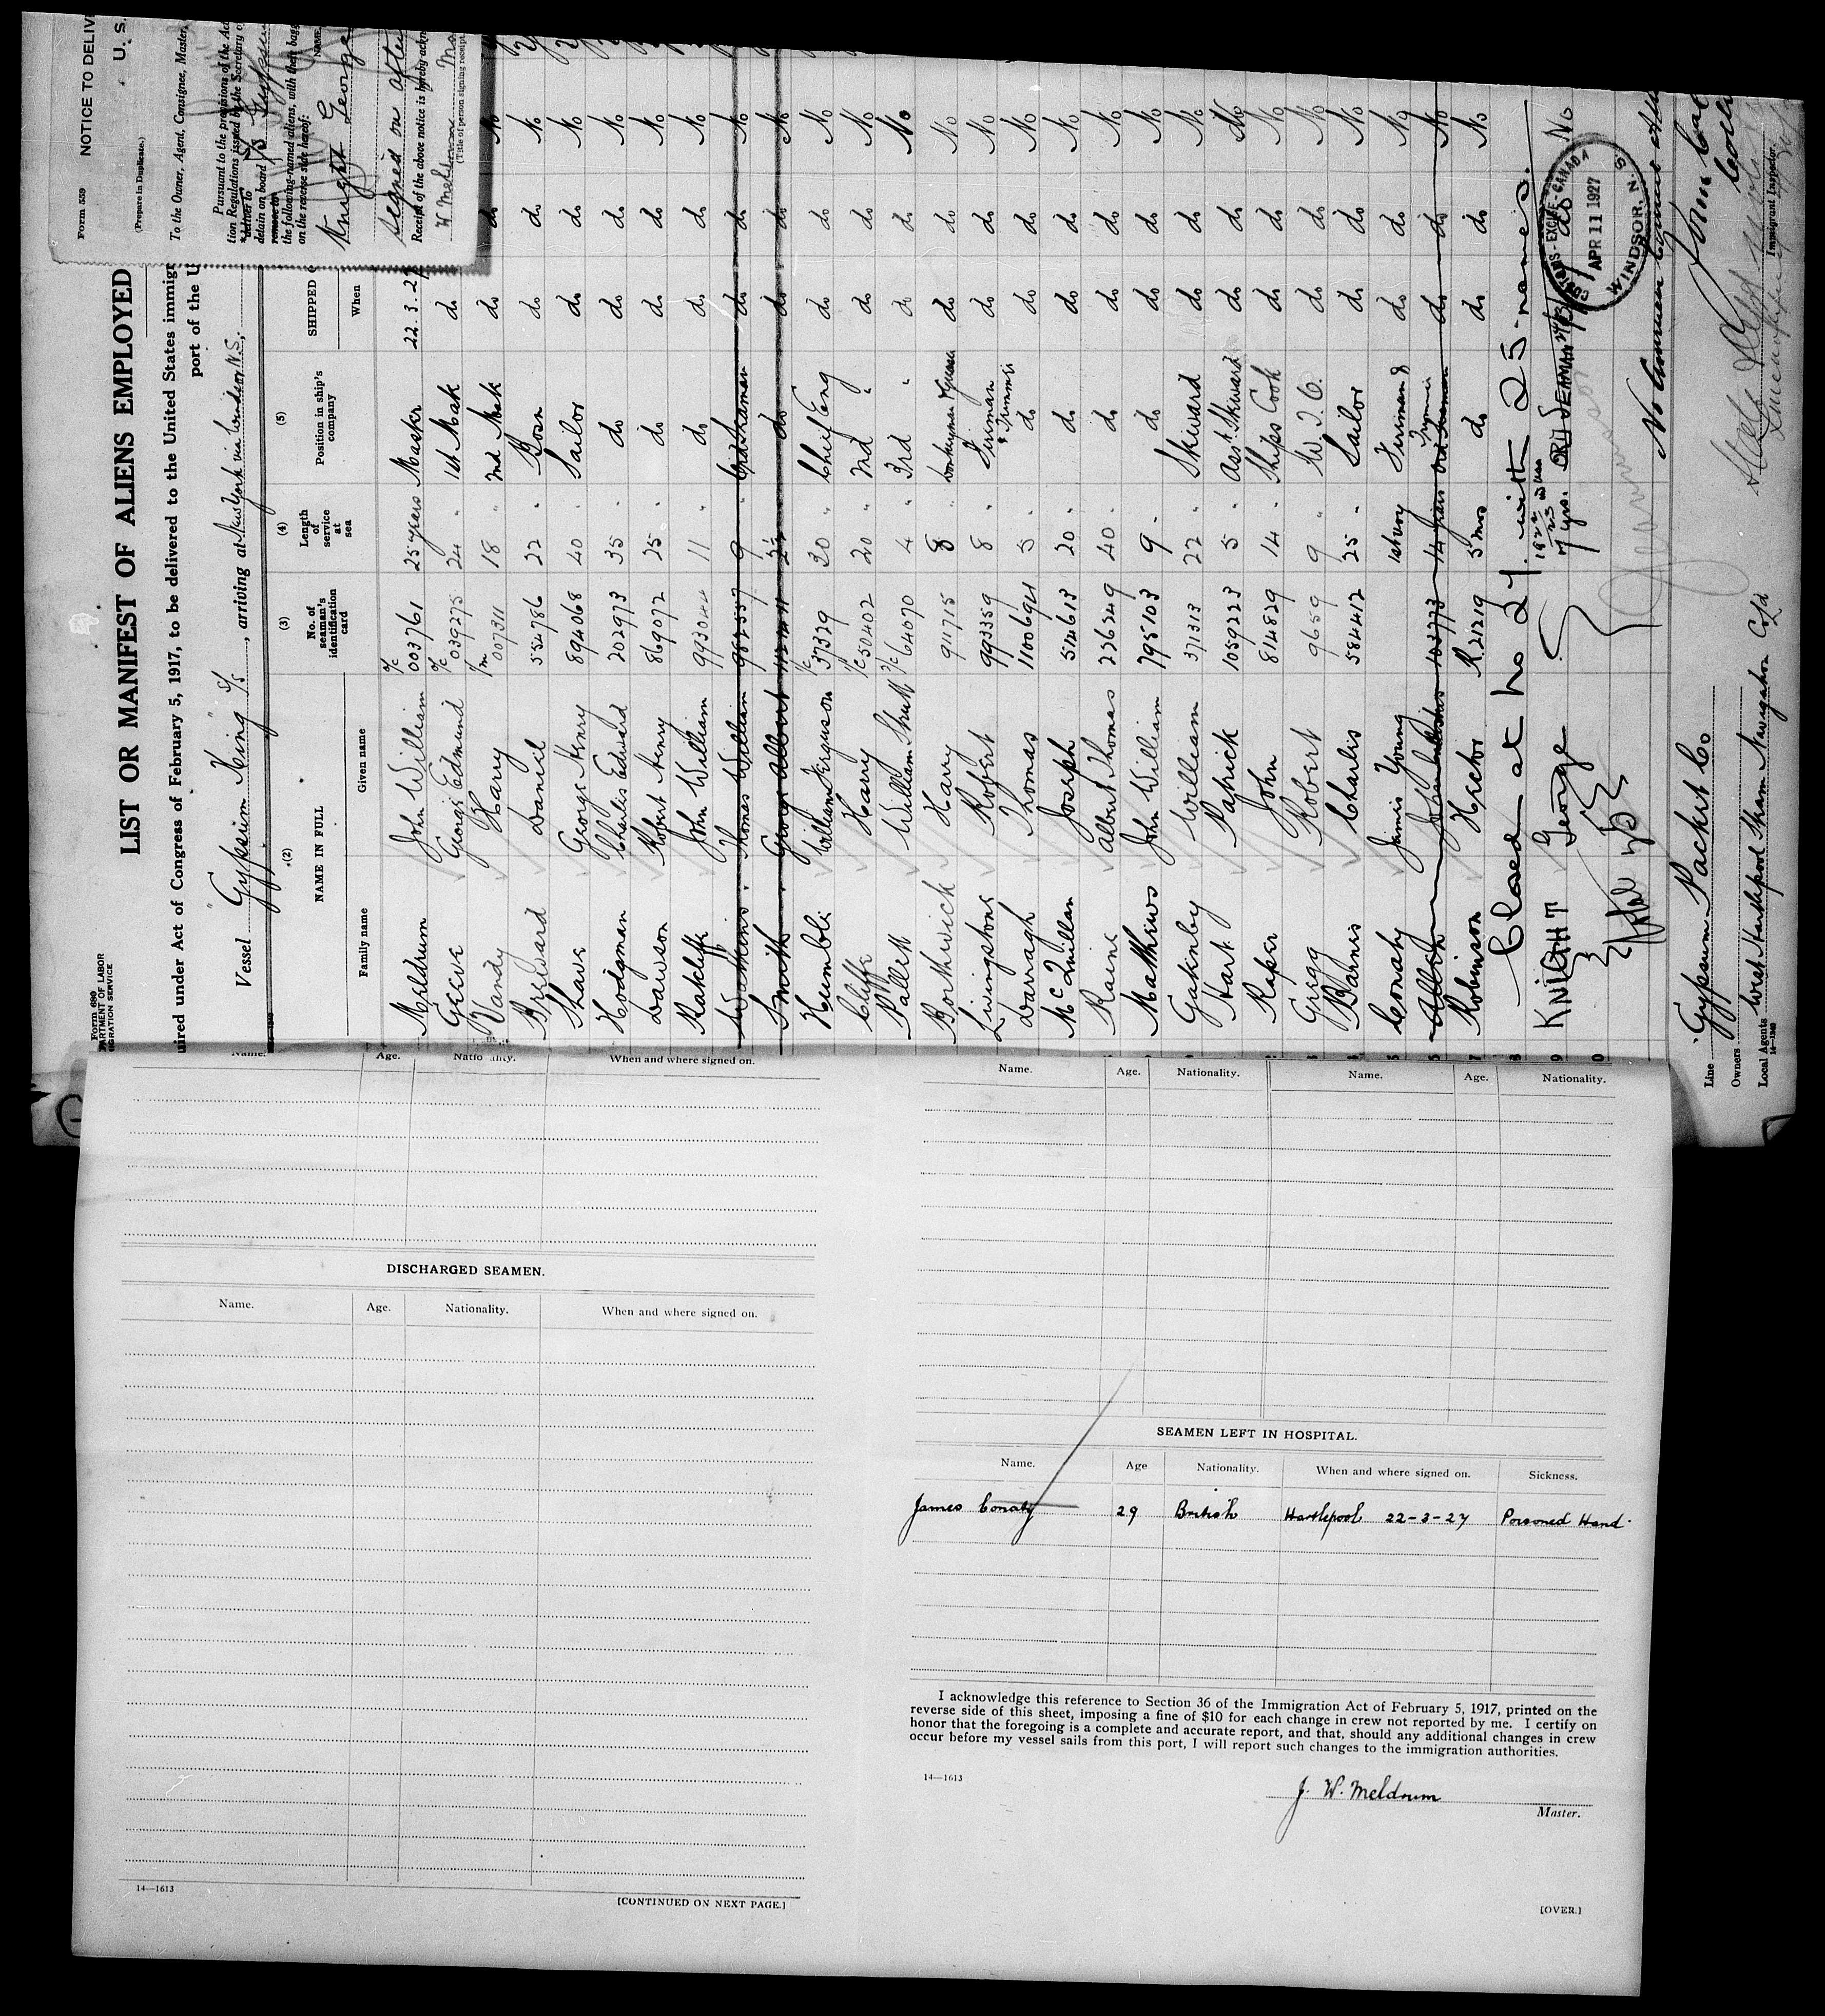 Form 559
NOTICE TO DELIV
U. S.
(Prepare in Duplicate.)
To the Owner, Agent, Consignee, Master,
Pursuant to the provisions of the Act
tion Regulations issued by the Secretary of
deliver to
detain on board
remove to
the following-named aliens, with their bagg
on the reverse side hereof:
NAME
Knight George
signed on after
Receipt of the above notice is hereby ackn
W Meldrum Ma
(Title of person signing receipt
Form 680
PARTMENT OF LABOR
IGRATION SERVICE
LIST OR MANIFEST OF ALIENS EMPLOYED
uired under Act of Congress of February 5, 1917, to be delivered to the United States immigr
port of the U
Vessel "Gypsum King" S/S, arriving at New York via Windsor N.S.
(2) (3) (4) (5)
NAME IN FULL No. of seaman's identification card Length of service at sea Position in ship's company SHIPPED
Family name Given name When
Meldrum John William 003761 25 years Master 22.3.27
Geeve George Edmund 039275 24 " 1st Mate do
Vandy Harry 007311 18 " 2nd Mate do do No
Breeward Daniel 554786 22 " Bosn do do No
Shave George Henry 894068 40 " Sailor do do No
Hodgman Charles Edward 202973 35 " do do do No
Dawson Robert Henry 869072 25 " do do do No
Ratcliffe John William 993044 11 " do do do No
Watkins Thomas William 982557 9 " do do No
Smith George Albert do do do No
Humble William Ferguson 37329 30 " Chief Eng do do No
Cliffe Henry 50402 20 " 2nd " do do No
Pallett William Shutt 64070 4 " 3rd " do do No
Borthwick Harry 911715 8 " do do No
Livingstone Robert 993359 8 " Fireman & Trimmer do do No
Darragh Thomas 1100694 5 " do do do No
McQuillan Joseph 514613 20 " do do do No
Raine Albert Thomas 236249 40 " do do do No
Matthews John William 795103 9 " do do do No
Gatenby William 371313 22 " Steward do do No
Hart Patrick 1059223 5 " Asst Steward do do No
Raper John 814829 14 " Ships Cook do do No
Gregg Robert 9659 9 " W.T.O. do do No
Barnes Charles 584412 25 " Sailor do do No
Conaty James Young 1st voy Fireman & Trimmer do do No
Allen 10373 14 years Ord Seaman do do No
Robinson Hector R.21219 5 mos do do do No
Closed at No 27. with 25 names.
KNIGHT George 7 yrs. ORD SEAMAN do No
CUSTOMS - EXCISE - CANADA
APR 11 1927
WINDSOR, N. S.
Line Gypsum Packet Co
Owners
Local Agents West Hartlepool Steam Navigation Co Ld
14—1240
Immigrant Inspector.
Name. Age. Nationality. When and where signed on.
DISCHARGED SEAMEN.
Name. Age. Nationality. When and where signed on.
14—1613
[CONTINUED ON NEXT PAGE.]
Name. Age. Nationality. Name. Age. Nationality.
SEAMEN LEFT IN HOSPITAL.
Name. Age Nationality. When and where signed on. Sickness.
James Conaty 29 British Hartlepool 22-3-27 Poisoned Hand.
I acknowledge this reference to Section 36 of the Immigration Act of February 5, 1917, printed on the
reverse side of this sheet, imposing a fine of $10 for each change in crew not reported by me. I certify on
honor that the foregoing is a complete and accurate report, and that, should any additional changes in crew
occur before my vessel sails from this port, I will report such changes to the immigration authorities.
14—1613
J. W. Meldrum
Master.
[OVER.]